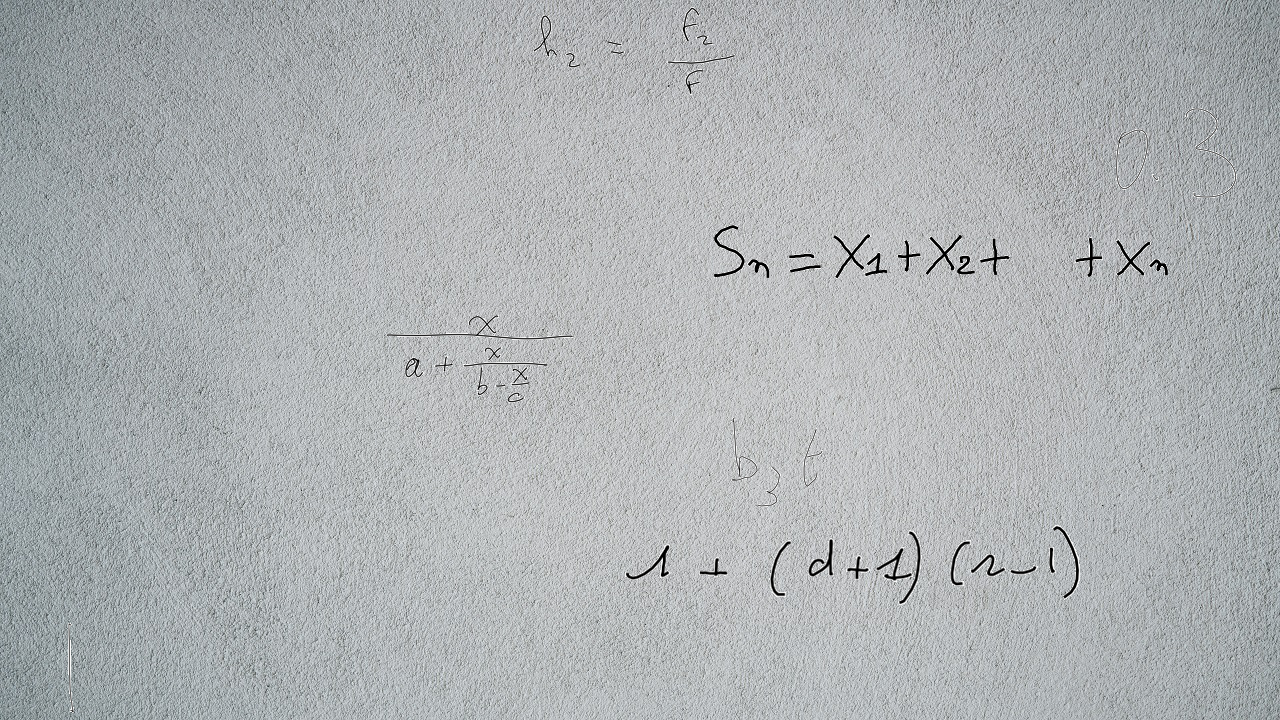 h₂ = f₂/f
0.3
Sₙ = X₁ + X₂ + + Xₙ
x/(a + x/(b - x/c))
b₃ t
1 + (d+1) (r-1)